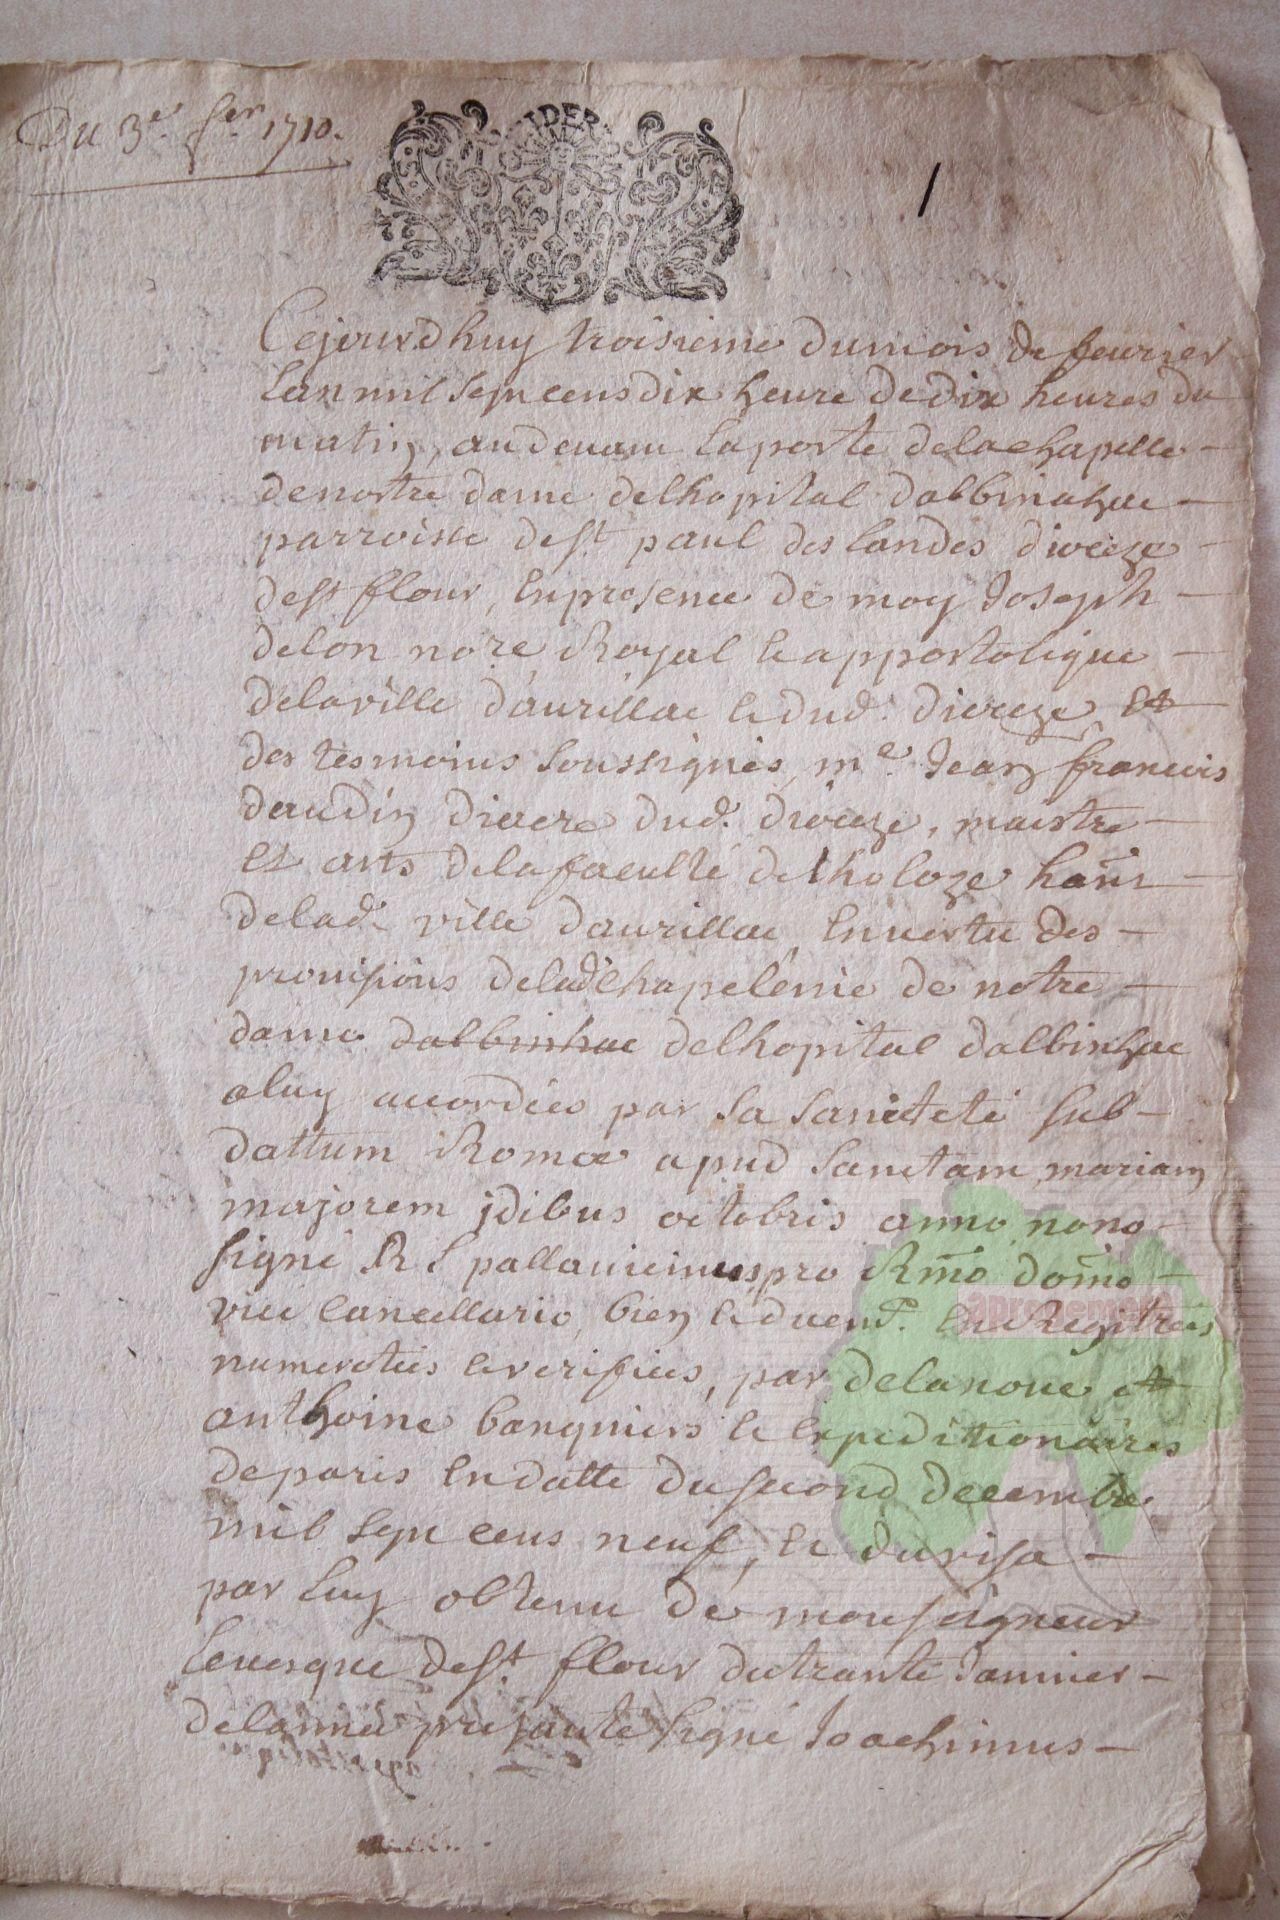 Du 3e. fer. 1710.
1
Cejourdhuy troisieme du mois de feurier
Lan mil sept cens dix heure de dix heures du
matin, au deuant la porte de la chapelle
de nostre dame de lhopital dalbinhac
parroisse de st. paul des landes dioceze
de st flour, En presence de moy Joseph
delon nore Royal Et appostolique
de la ville d'aurillac Et dud. dioceze, Et
des tesmoins soussignés, me. Jean francois
daudin diacre dud. dioceze, maistre
Es arts de la faculté de tholoze hant
de lad. ville daurillac, En uertu des
prouisions de lad chapelenie de notre
dame dalbinhac de lhopital dalbinhac
a luy accordées par sa saincteté sub
dattum Romæ apud sanctam mariam
majorem jdibus octobris anno nono
signé R S pallauicinus, pro Rmo domo
vice cancellario, bien Et duemt. En Registrées
numerotées Et verifiées, par delanoue et
anthoine banquiers Et Expeditionaires
de paris En datte du second decembre
mil sept cens neuf, Et du visa
par luy obtenu de monseigneur
Leuesque de st. flour du trante Januier
de lannéé presante signé Joachimus